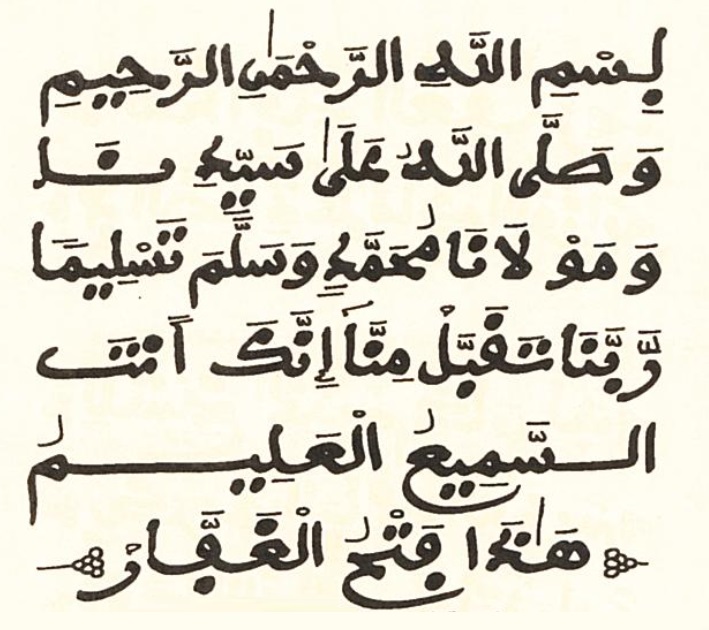 بِسْمِ اللَّهِ الرَّحْمَٰنِ الرَّحِيمِ
وَصَلَّى اللَّهُ عَلَىٰ سَيِّدِ نَا
وَمَوْ لَانَا مُحَمَّدٍ وَسَلَّمَ تَسْلِيمًا
رَّبَّنَا تَقَبَّلْ مِنَّا إِنَّكَ أَنتَ
السَّمِيعُ الْعَلِيمُ
هَٰذَا فَتْحُ الْغَفَّارْ